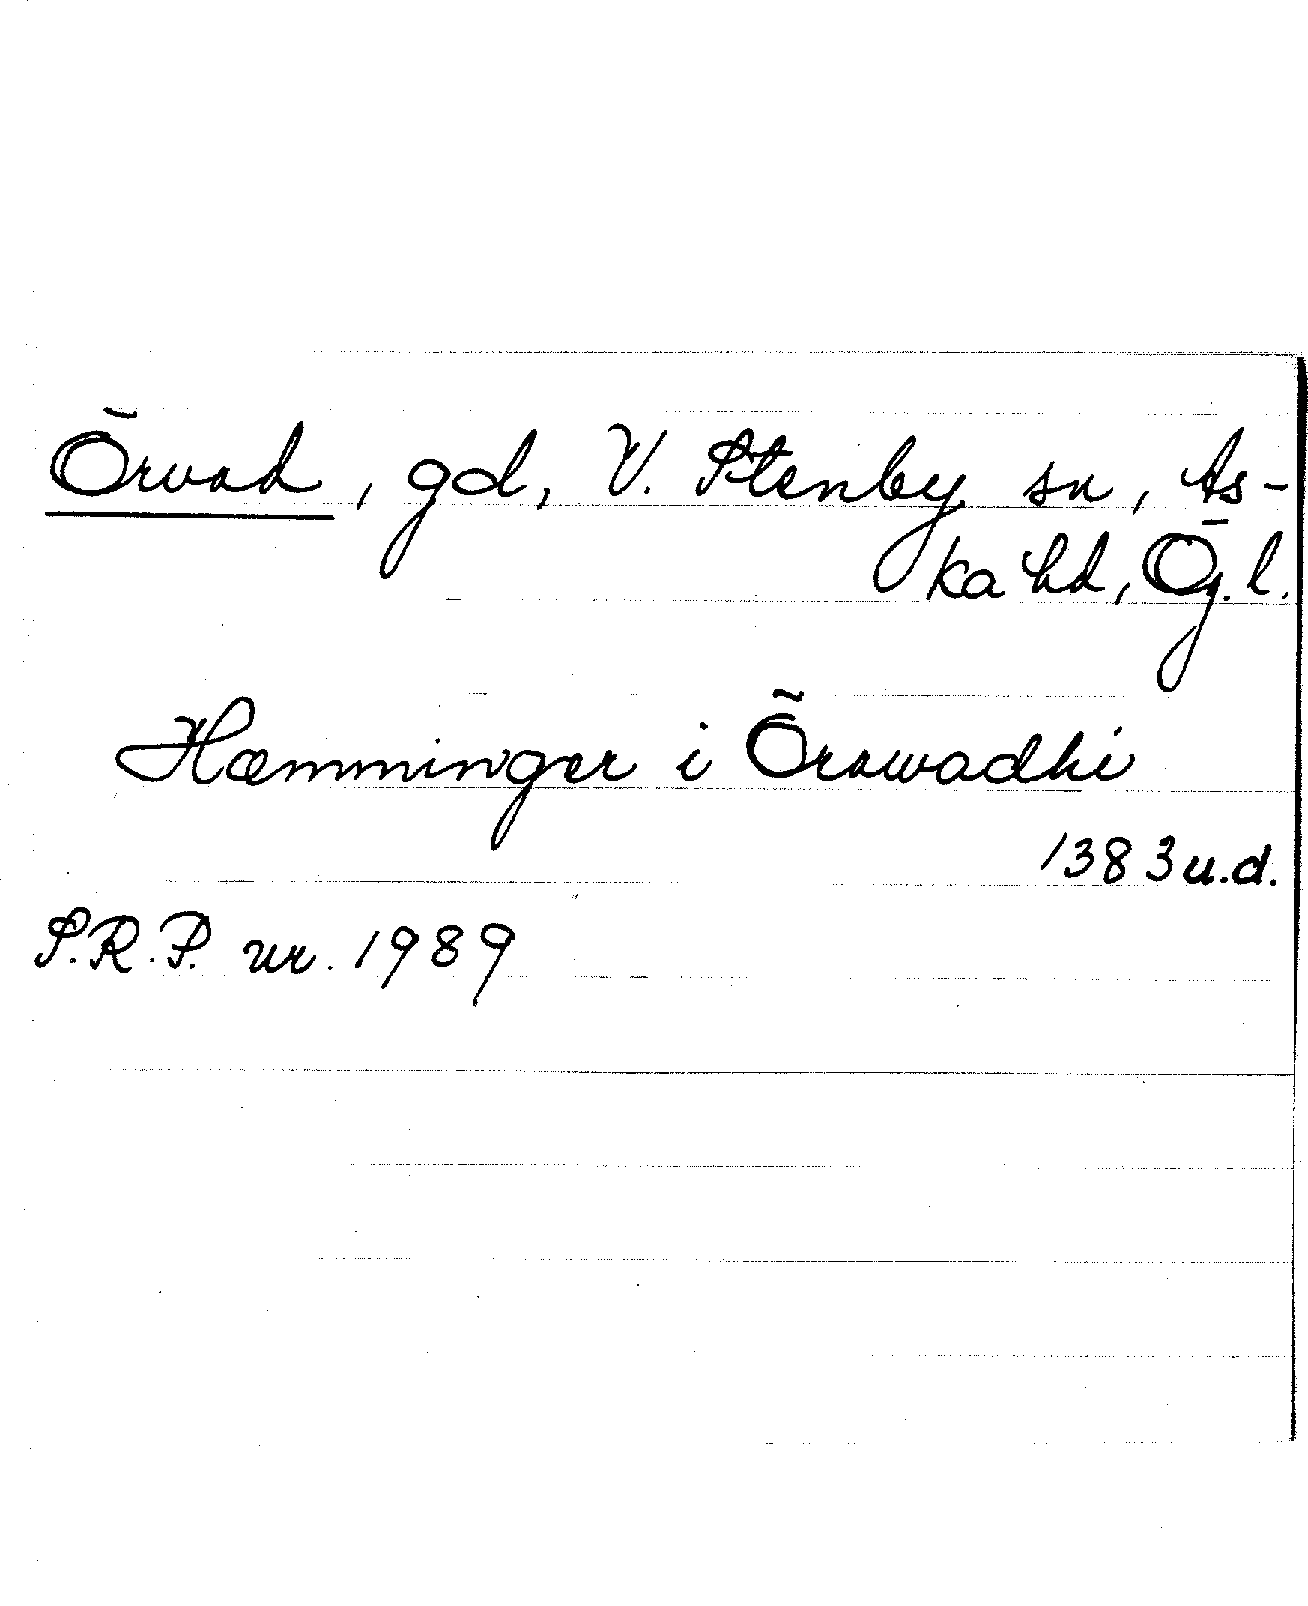 Örvad, gd, V. Stenby sn, As-
ka hd, Ög. l.
Hæmminger i Örawadhi
1383 u.d.
S.R.P. nr. 1989